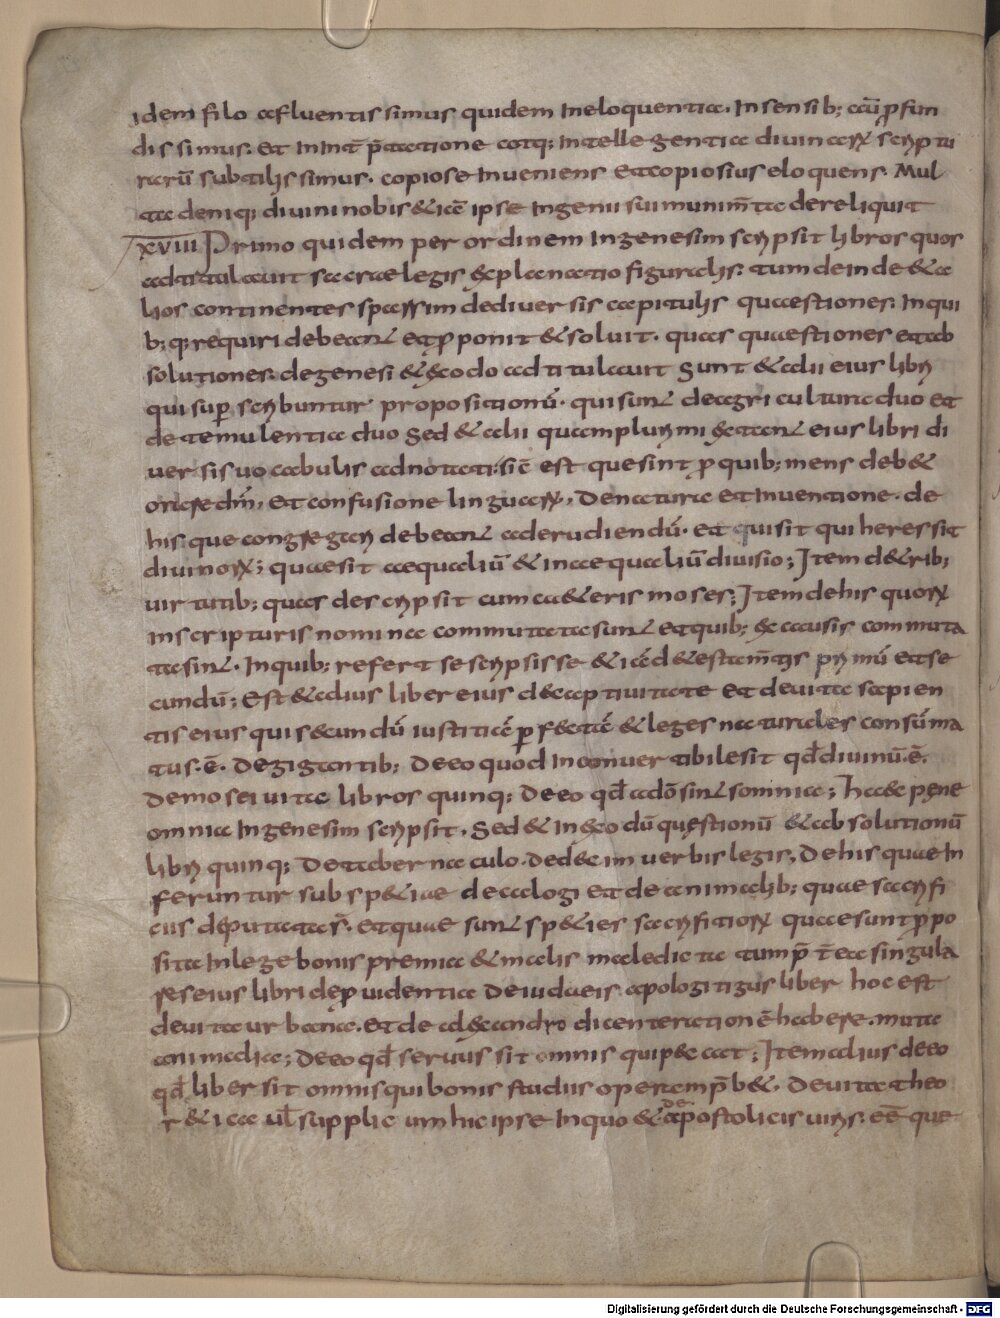 idem filo affluentissimus quidem In eloquentia. In sensib; aū ꝓfun
dissimus. Et In Int̄ p̄tatione atq; Intellegentia diuinaꝝ scrip tu
rarū subtilissimus. copiose Inueniens et copiosius eloquens. Mul
ta deniq; diuini nobis & iā ipse Ingenii sui munim̄ta dereliquit
XVIII Primo quidem per ordinem In genesim scripsit libros quos
adtitulauit sacrae legis &planatio figuralis. tum deinde & a
lios continentes sparsim de diuersis capitulis quaestiones. In qui
b; q; requiri debeant et ꝓponit & soluit. quas quaestiones et ab
solutiones. de genesi & &odo adtitulauit Sunt & alii eius libri
qui suꝑ scribuntur propositionū. qui sunt de agri cultura duo et
de temulentia duo Sed & alii quamplurimi &tant eius libri di
uersis uocabulis adnotati. si ē est que sint ꝓ quib; mens deb&
orare dm̄, et confusione linguaꝝ, De natura et Inuentione. de
his que congregari debeant ad erudiendū. et quis sit qui heres sit
diuinoꝝ; quae sit aequaliū & inaequaliū diuisio; Item de trib;
uirtutib; quas descripsit cum ca&eris moses; Item de his quoꝝ
In scripturis nomina commutata sunt et quib; &causis commuta
ta sint. In quib; refert se scripsisse & iā de testam̄tis primū et se
cundū; Est & alius liber eius de captiuitate et de uita sapien
tis eius qui secundū iustitiā ꝑfectā & leges naturales consūma
tus. ē. De gigantib; De eo quod Inconuertibile sit qd̄ diuinū. ē.
De mosei uita libros quinq; De eo qd̄ a dō sint somnia; haec pene
omnia In genesim scripsit. Sed & in &odū questionū & absolutionū
libri quinq; De tabernaculo. De decim uerbis legis, De his quae In
feruntur sub specie decalogi et de animalib; quae sacrifi
ciis deputata s̄. et quae sunt species sacrificioꝝ quae sunt ꝓpo
sita In lege bonis premia & malis maledicta tum p̄ t̄ ea singula
res eius libri de ꝓuidentia De iudaeis. apologitigus liber hoc est
de uita urbana. et de alexandro dicente rationē habere. muta
animalia; De eo qd̄ seruus sit omnis qui peccat; Item alius de eo
qd̄ liber sit omnis qui bonis studiis operam p̄b&. De uita theo
r&ica ul̄ supplicum hic ipse In quo & de apostolicis uiris. eē que